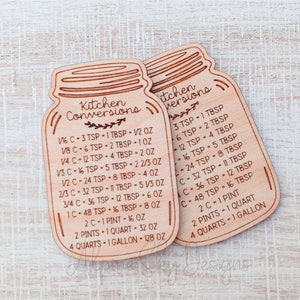 Kitchen
Conversions
1/16 C = 3 TSP = 1 TBSP = 1/2 OZ
1/8 C = 6 TSP = 2 TBSP = 1 OZ
1/4 C = 12 TSP = 4 TBSP = 2 OZ
1/3 C = 16 TSP = 5 TBSP = 2 2/3 OZ
1/2 C = 24 TSP = 8 TBSP = 4 OZ
2/3 C = 32 TSP = 11 TBSP = 5 1/3 OZ
3/4 C = 36 TSP = 12 TBSP = 6 OZ
1 C = 48 TSP = 16 TBSP = 8 OZ
2 C = 1 PINT = 16 OZ
2 PINTS = 1 QUART = 32 OZ
4 QUARTS = 1 GALLON = 128 OZ
Kitchen
Conversions
3 TSP = 1 TBSP
6 TSP = 2 TBSP
12 TSP = 4 TBSP
16 TSP
24 TSP = 8 TBSP
32 TSP = 11 TBSP
36 TSP = 12 TBSP
48 TSP = 16 TBSP
2 C = 1 PINT
2 PINTS = 1 QUART
4 QUARTS = 1 GALLON
Designs